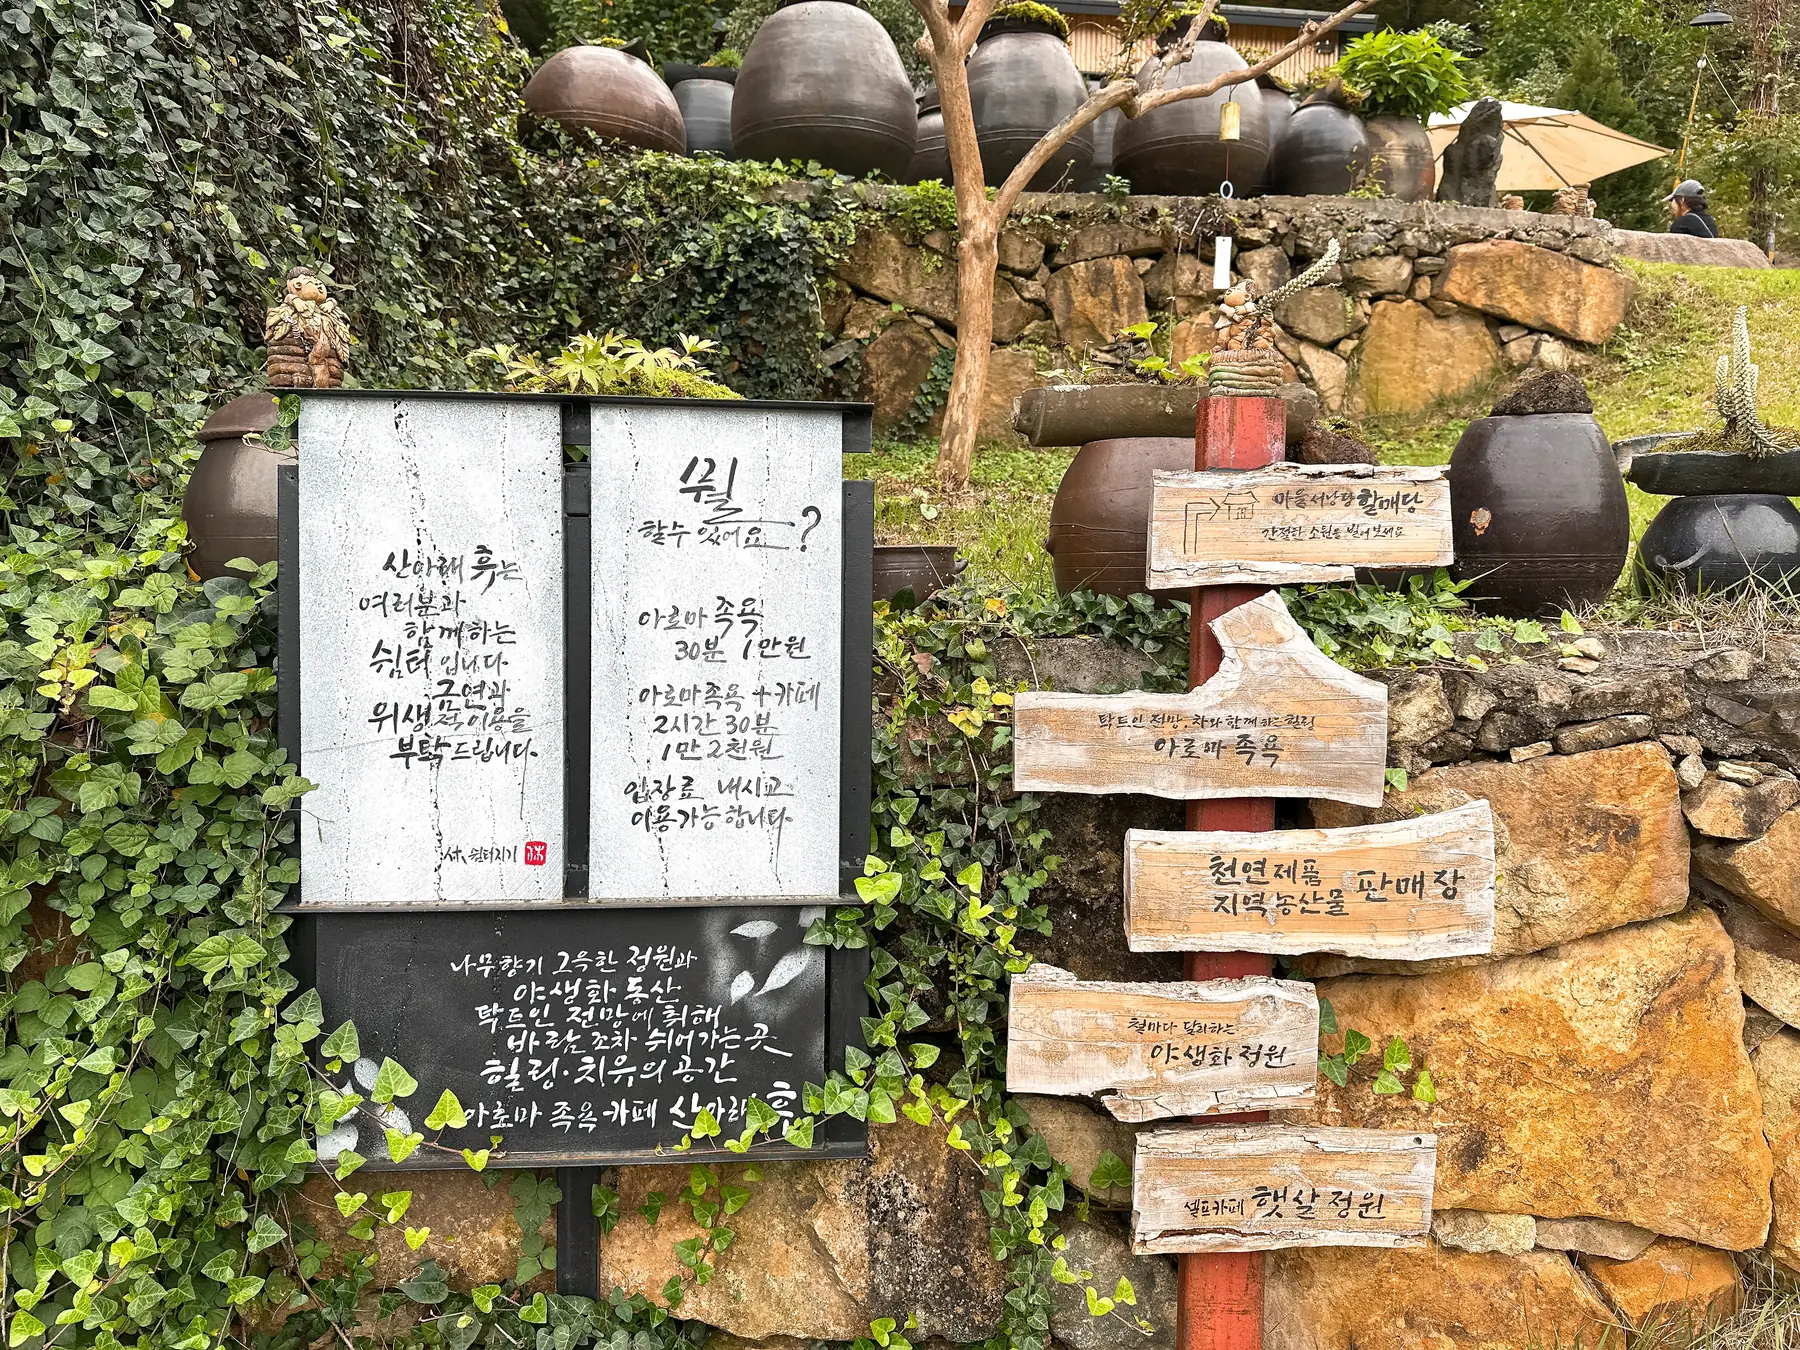 산아래 휴는
여러분과
함께하는
쉼터 입니다
금연과
위생적 이용을
부탁드립니다.
休, 쉼터지기
休
뭘
할수 있어요?
아로마 족욕
30분 1만원
아로마족욕 + 카페
2시간 30분
1만 2천원
입장료 내시고
이용가능합니다.
나무향기 그윽한 정원과
야생화 동산
탁트인 전망에 취해
바람조차 쉬어가는 곳
힐링·치유의 공간
아로마 족욕 카페 산아래 휴
마을 서낭당 할매당
간절한 소원을 빌어보세요
탁트인 전망·차와 함께하는 힐링
아로마 족욕
천연제품
지역농산물 판매장
철마다 달리하는
야생화 정원
셀프카페 햇살정원